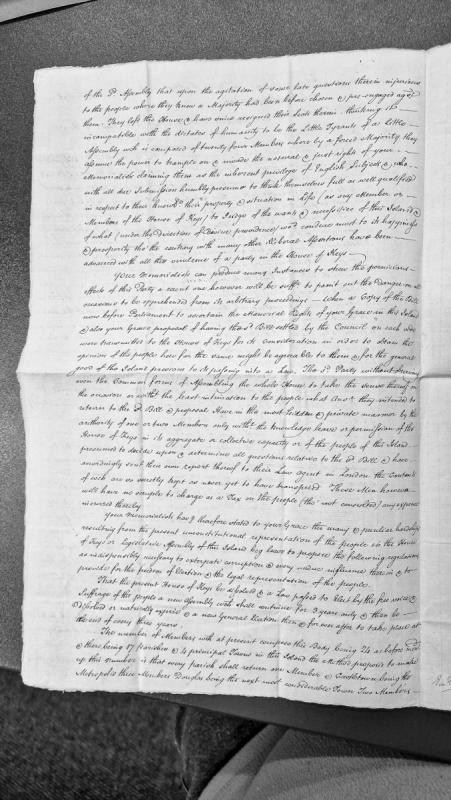 of the sd. Assembly that upon the agitation of some late questions therein injurious
to the people where they knew a Majority had been before chosen & pre-engaged agst.
them. They left the House & have since resigned their Seats therein thinking it
incompatible with the dictates of humanity to be the Little Tyrants of a Little
Assembly wch. is composed of twenty four Members where by a forced Majority they
assume the power to trample on & invade the natural & just rights of your
Memorialists claiming them as the inherent privilege of English Subjects & who
with all due Submission humbly presume to think themselves full as well qualified
in respect to their property & situation in life (as any Member or
Members of the House of Keys) to Judge of the wants & necessities of this Island &
of what (under the direction of Divine providence) wod. conduce most to its happiness
& prosperity tho' the contrary with many other illiberal Assertions have been
advanced with all the virulence of a party in the House of Keys
Your Memorialists can produce many Instances to shew the pernicious
effects of this Party a recent one however will be sufft. to point out the dangerous
measures to be apprehended from its arbitrary proceedings - When a Copy of the Bill
now before Parliament to ascertain the Manorial Rights of your Grace in this Island
& also your Graces proposal of having that Bill settled by the Council on each side
were transmitted to the House of Keys for its consideration in order to obtain the
opinion of the people how far the same might be agreeable to them & for the general
good of this Island previous to its passing into a Law. The sd. Party without observing
even the Common form of Assembling the whole House to take the sense thereof on
the occasion or witht. the least intimation to the people what Answr. they intended to
return to the sd. Bill & proposal Have in the most hidden & private manner by the
authority of one or two Members only witht. the knowledge leave or permission of the
House of Keys in its aggregate or collective capacity or of the people of this Island
presumed to decide upon & determine all questions relative to the sd. Bill & have
accordingly sent their own report thereof to their Law agent in London the Contents
of wch. are so secretly kept as never yet to have transpired These Men however
will have no scruple to charge as a Tax on the people (tho' not consulted) any expence
incurred thereby
Your Memorialists having therefore stated to your Grace the many & peculiar hardships
resulting from the present unconstitutional representation of the people in the House
of Keys or Legislative Assembly of this Island beg leave to propose the following regulations
as indispensibly necessary to extirpate corruption & every undue influence therein & to
provide for the freedom of Election & the legal representation of the people
That the present House of Keys be dissolved & a Law passed to Elect by the free voice &
Suffrage of the people a new Assembly wch. shall continue for 3 years only & then be
dissolved or naturally expire & a new General Election then & for ever after to take place at
the end of every three years
The number of Members wch. at present compose this Body being 24 as before ment.
& there being 17 parishes & 4 principal Towns in this Island the Method proposed to make
up this number is that every parish shall return one Member & Castletown being the
Metropolis three Members Douglas being the next most considerable Town Two Members